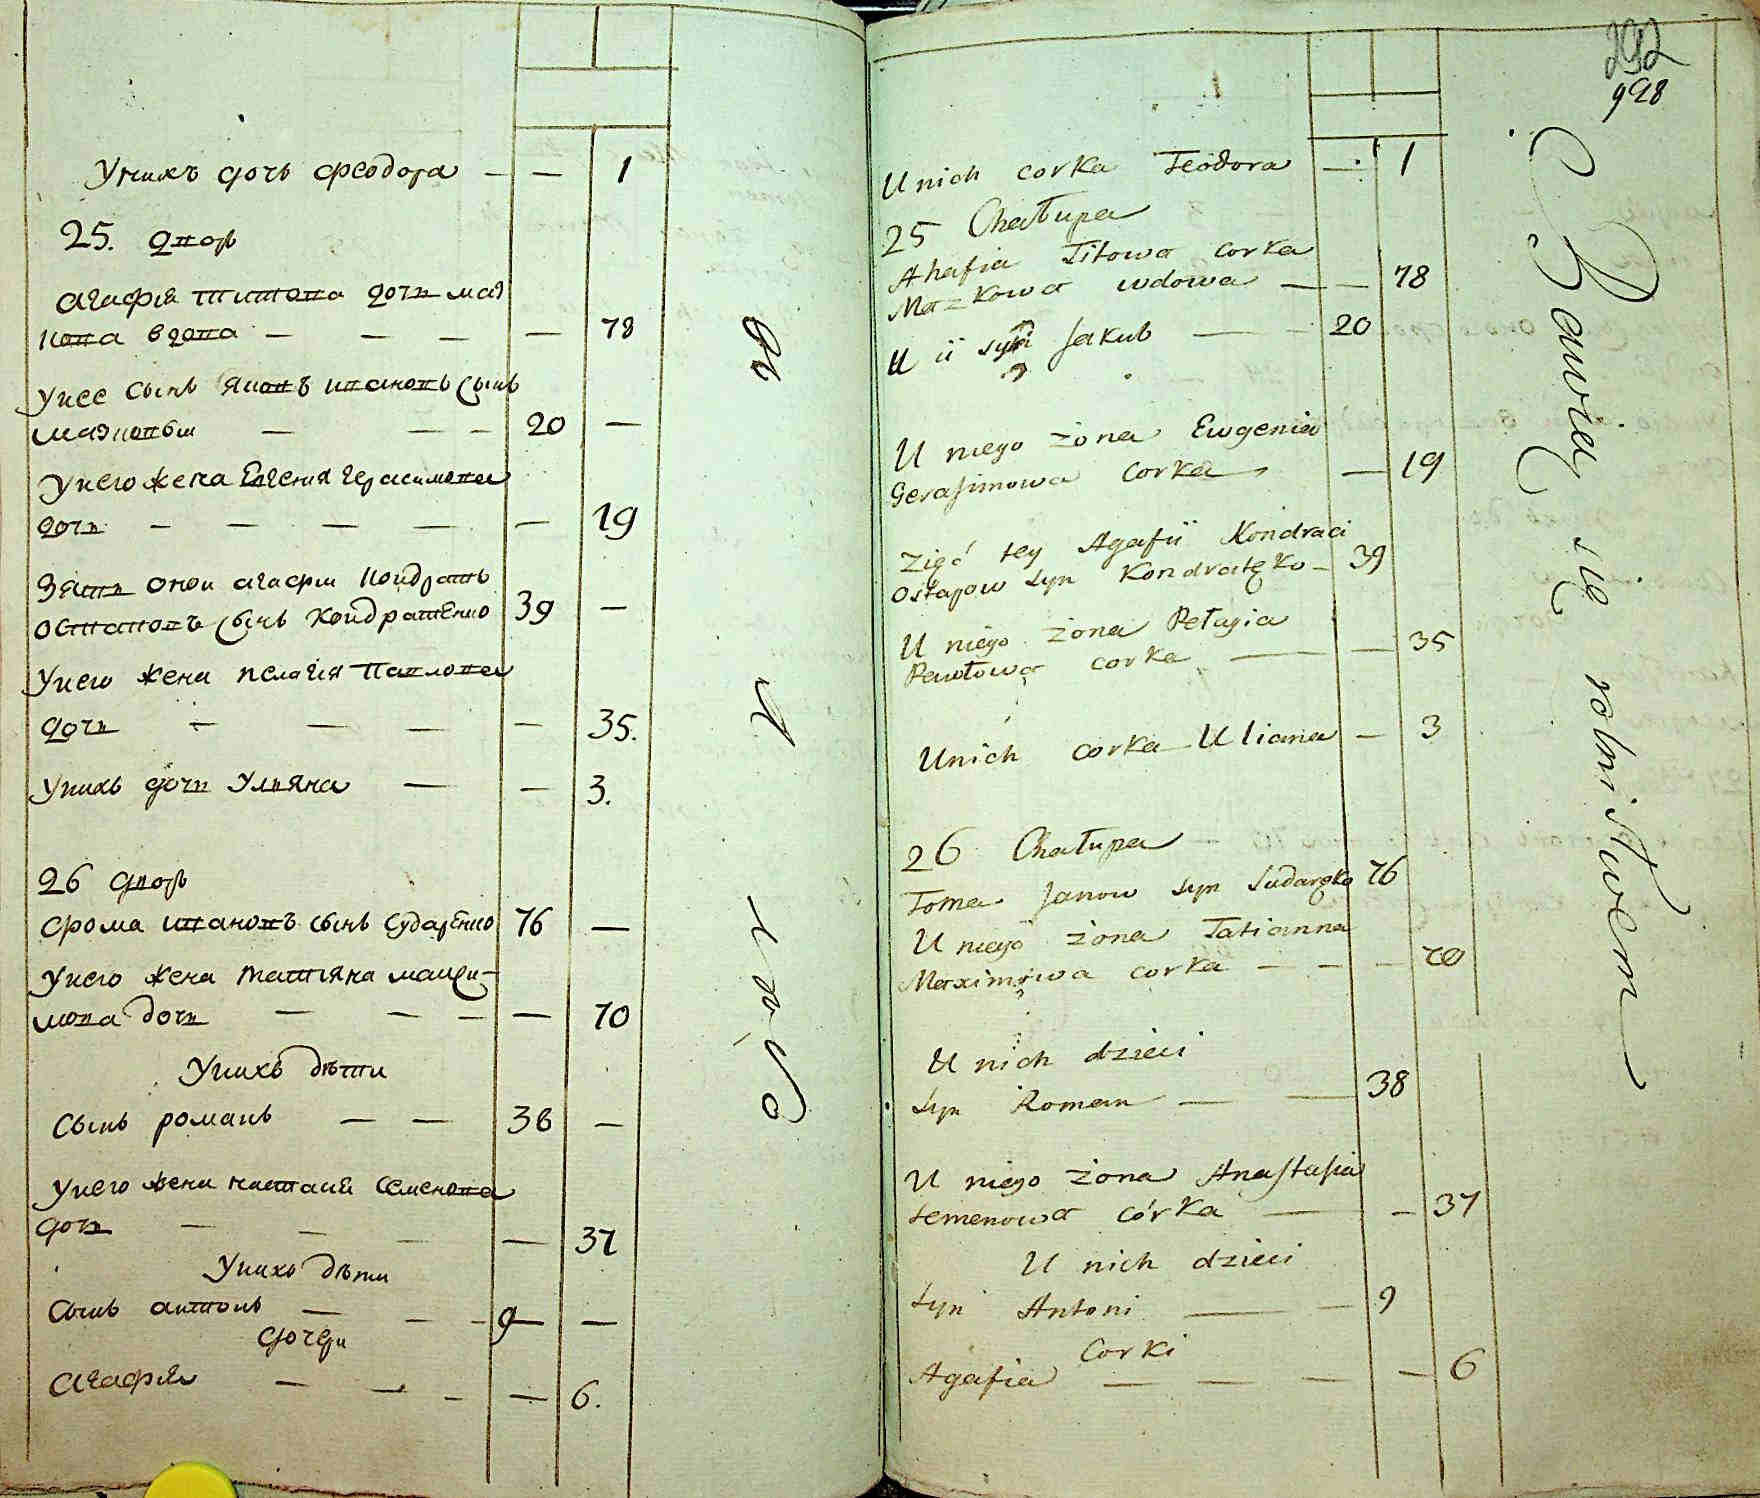 Унихъ дочь Феодора — — 1
25. дворъ
Агафия титова дочь маз
кова вдова — — — — 78
Унее сынъ Яковъ ивановъ сынъ
мазковъ — — — 20 —
Унего жена Евгения Герасимова
дочь — — — — — 19
Зять оной агафии Кондратъ
остаповъ сынъ Кондратенко 39 —
Унего жена пелагия Павлова
дочь — — — — 35.
Унихъ дочь Ульяна — — 3.
26 дворъ
Фома ивановъ сынъ Сударенко 76 —
Унего жена татияна макси-
мова дочь — — — — 70
Унихъ дѣти
Сынъ романъ — — 38 —
Унего жена настасия Семенова
дочь — — — — 37
Унихъ дѣти
Сынъ антонъ — — — 9 —
дочери
Агафия — — — — 6.
292
928
Unich corka Teodora — — 1
25 Chałupa
Ahafia Titowa corka
Mazkowa wdowa — — 78
U ii syn Jakub — — 20
U niego żona Ewgenia
Gerasimowa corka — 19
Zięć tey Agafii Kondraci
Ostapow syn Kondratęko — 39
U niego żona Pełagia
Pawłowa corka — — 35
Unich corka Uliana — 3
26 Chałupa
Toma Janow syn Sudaręko 76
U niego żona Tatianna
Maximowa corka — — — 70
U nich dzieci
syn Roman — — 38
U niego żona Anastasia
Semenowa córka — — 37
U nich dzieci
syn Antoni — — 9
Corki
Agafia — — — — 6
Bawię się rolnistwem